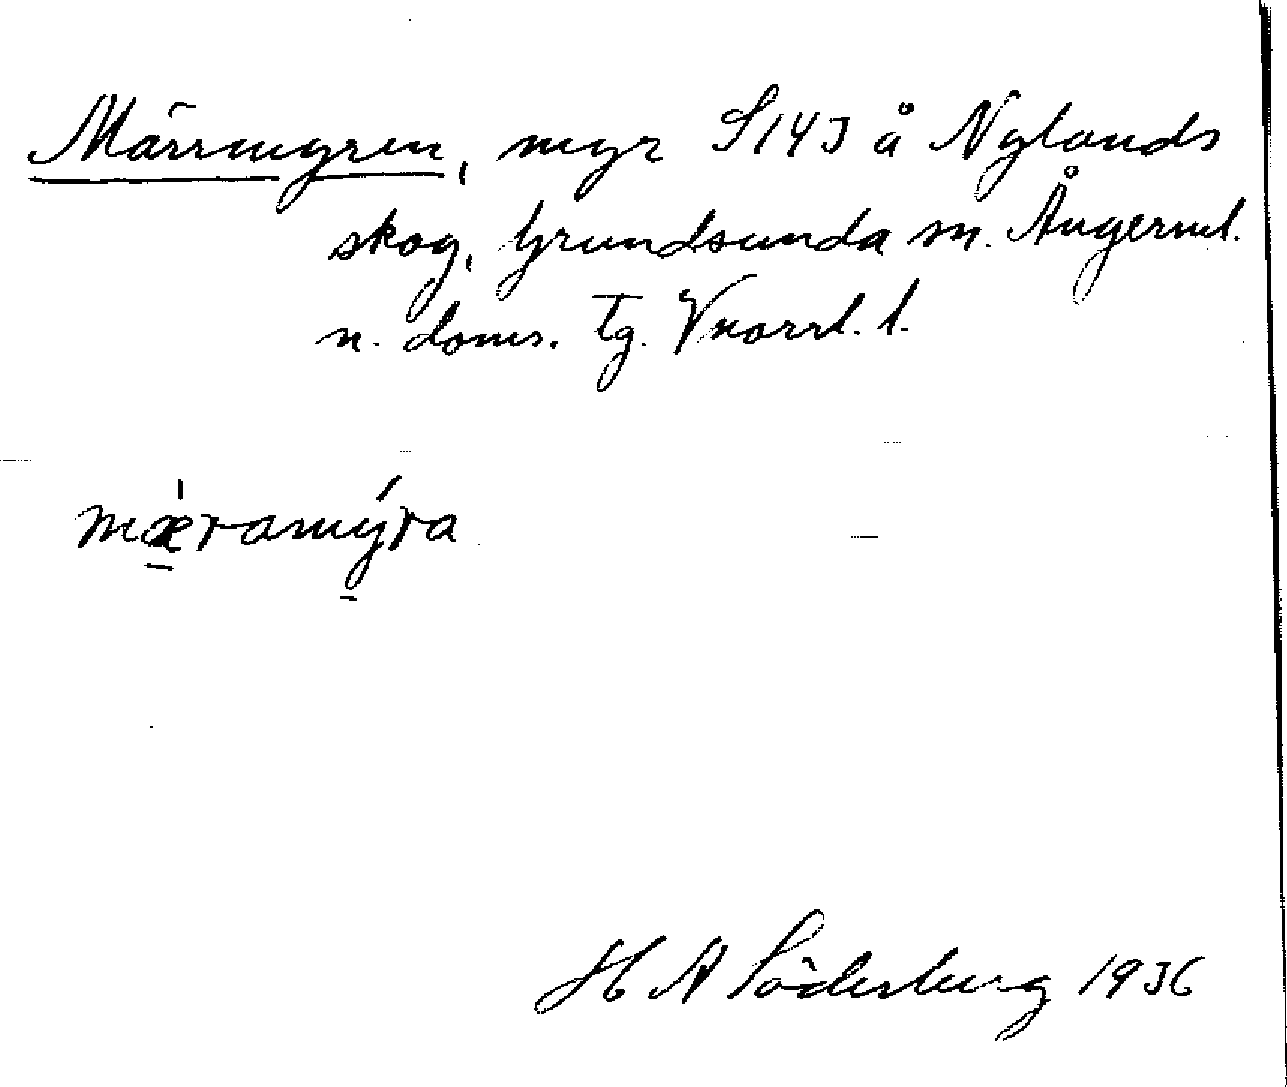 Märrmyren, myr S143 å Nylands
skog, Grundsunda sn. Ångerml.
n. doms. Tg. Vnorrl. l.
mæ̀ramýra
H A Söderberg 1936